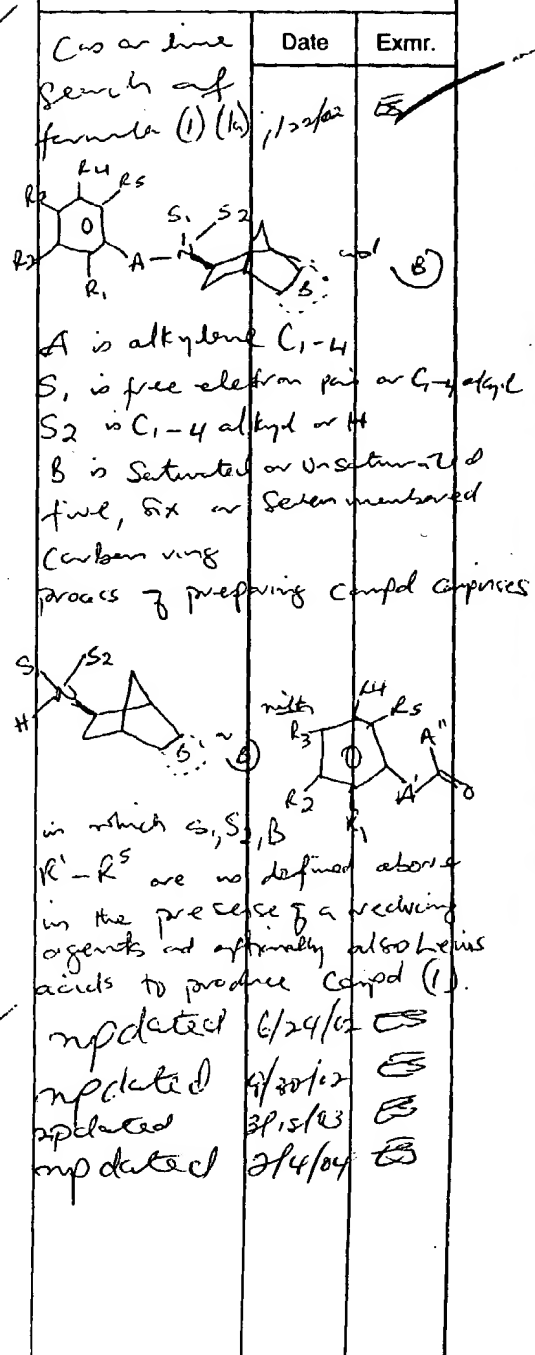 Date Exmr.
Cas on line
search of
formula (1) (1a)
R4
R3 R5
S1 S2
R2 A N B B
R1
A is alkylene C1-4
S1 is free electron pair or C1-4 alkyl
S2 is C1-4 alkyl or H
B is Saturated or Unsaturated
five, six or Seven membered
Carbon ring
process of preparing compd comprises
S S2
H B B
with R4
R3 R5 A''
A' O
R2 R1
in which S1, S2, B
R1 - R5 are as defined above
in the presence of a reducing
agents and optionally also Lewis
acids to produce Compd (1).
updated 6/24/02
updated
updated 3/15/03
updated 2/4/04